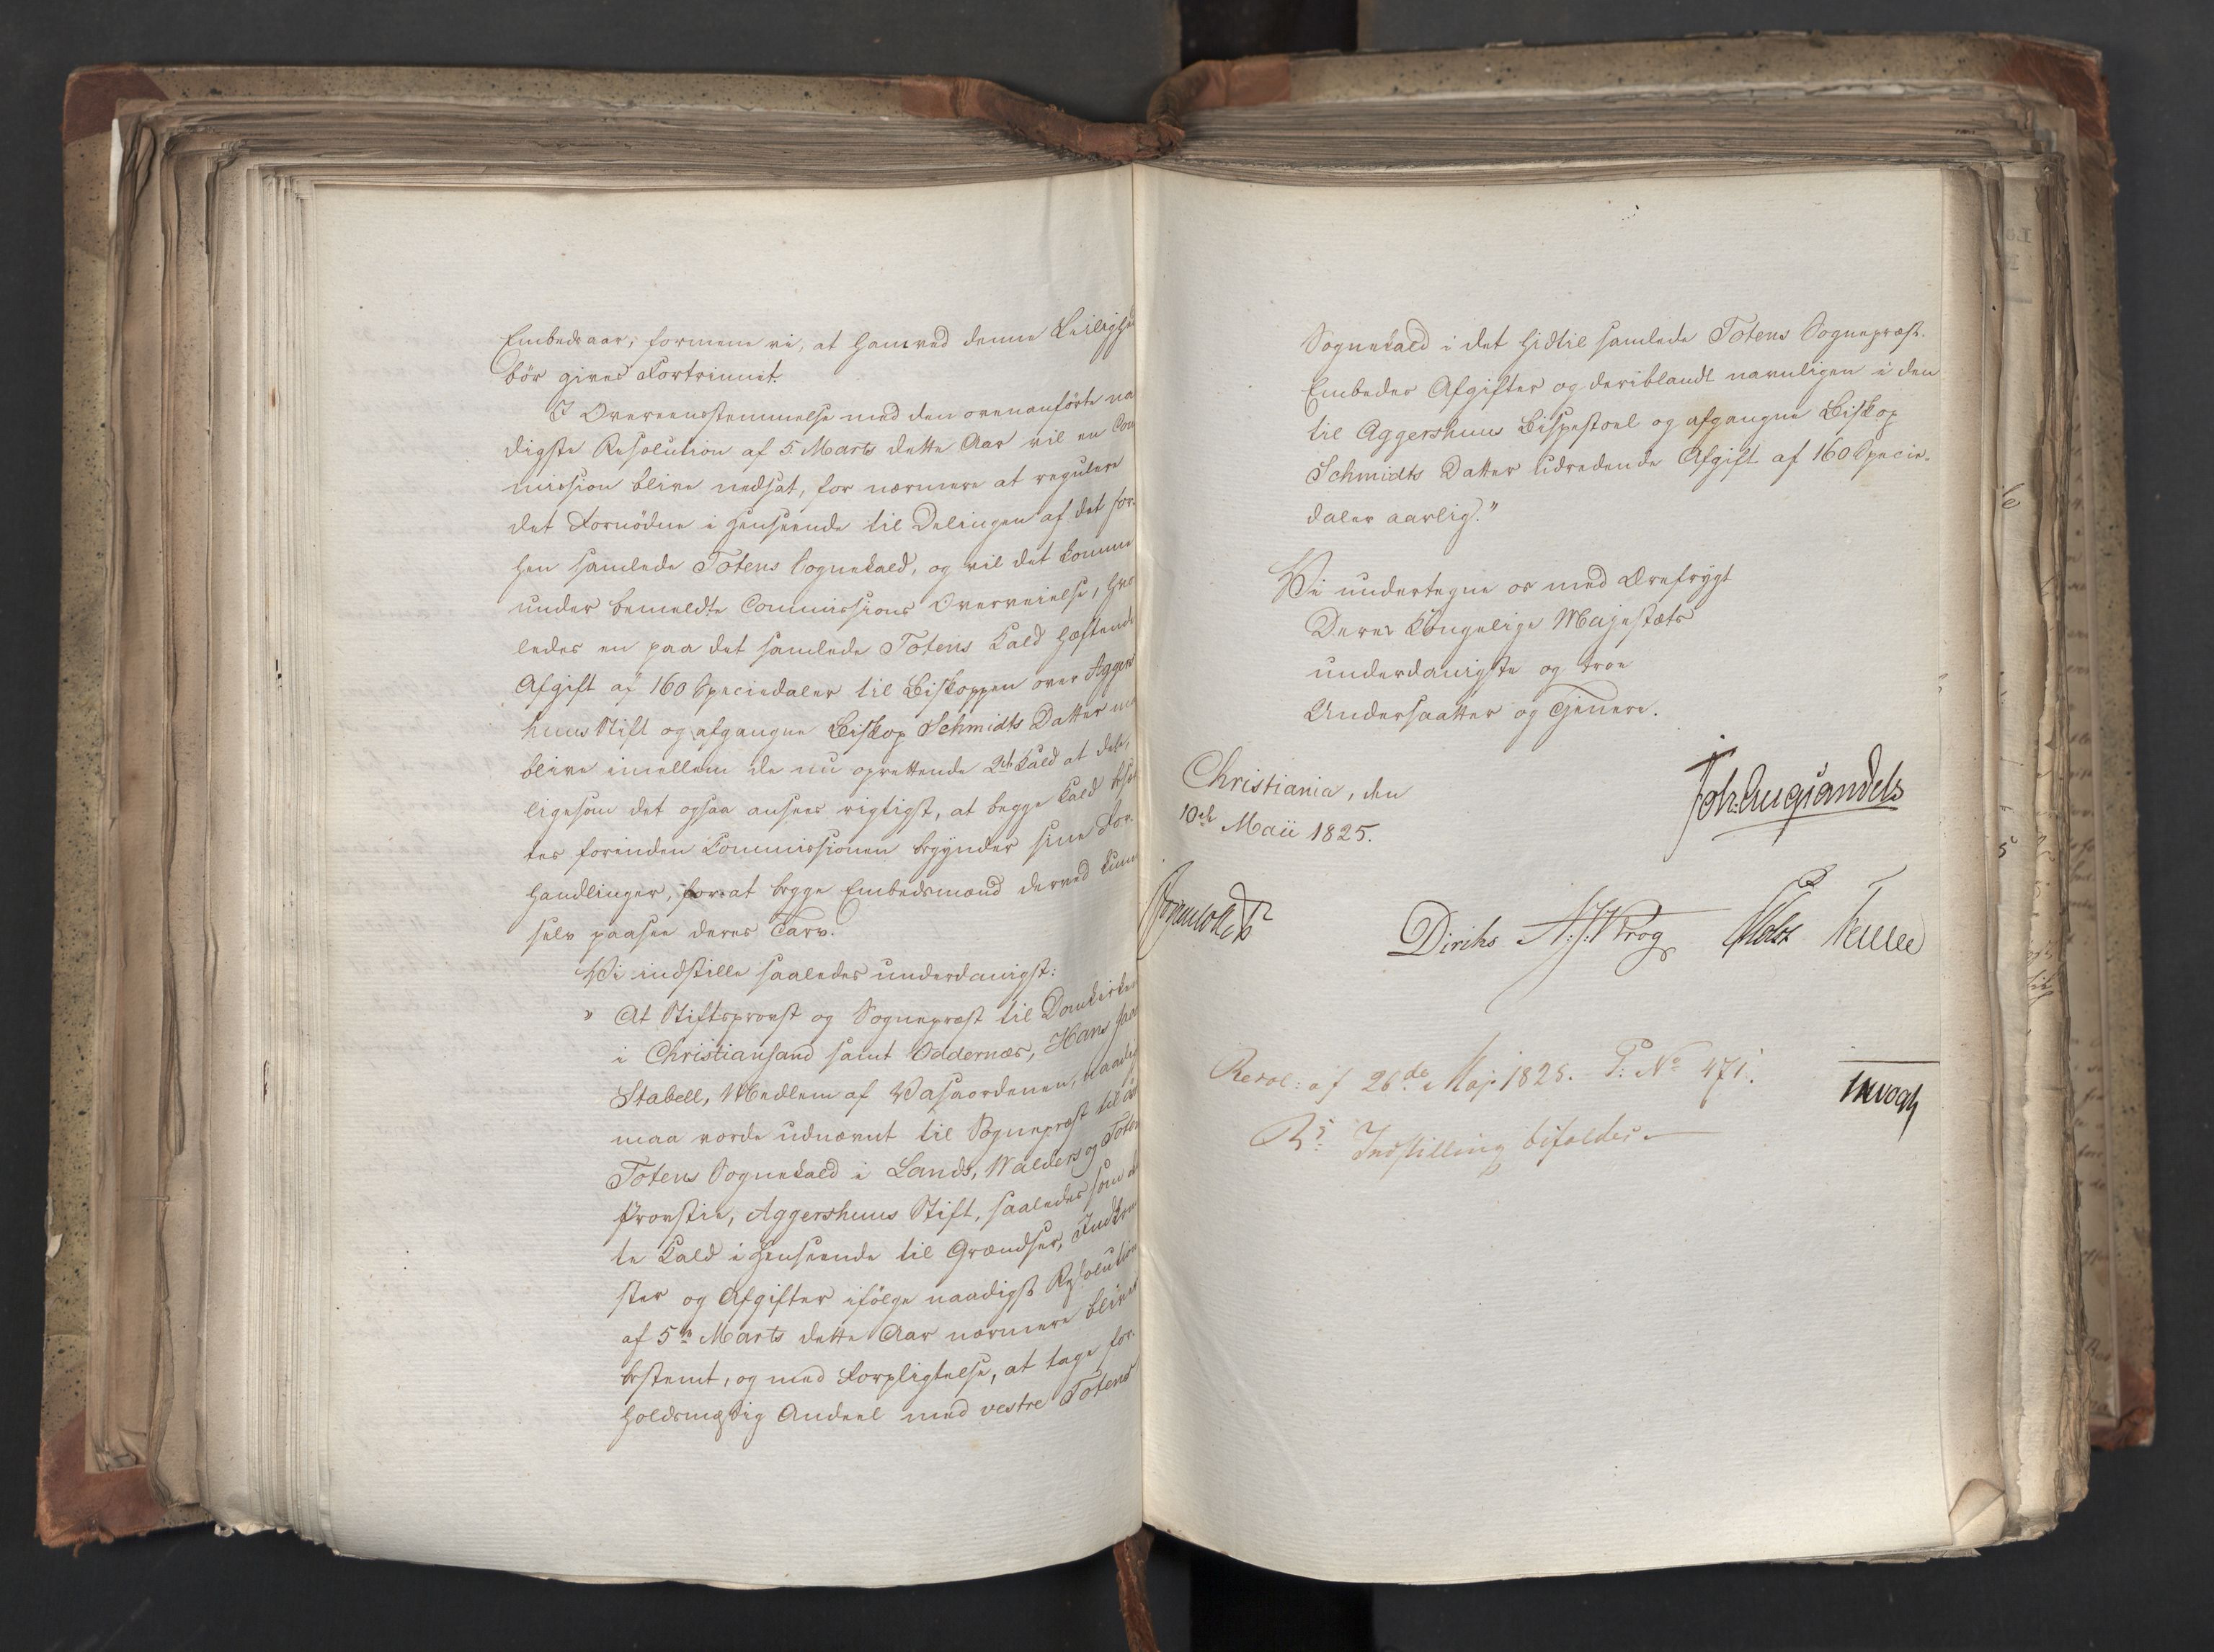 Embedsaar; formene vi, at ham ved denne Leilighed
bör gives Fortrinnet.
I Overeensstemmelse med den ovenanförte naa
digste Resolution af 5 Marts dette Aar vil en Com
mission blive nedsat, for nærmere at regulere
det Fornödne i Henseende til Delingen af det for-
hen samlede Totens Sognekald, og vil det komme
under bemeldte Commissions Overveielse, hvor
ledes en paa det samlede Totens Kald hæftende
Afgift af 160 Speciedaler til Biskoppen over Aggers
huus Stift og afgangne Biskop Schmidts Datter maa
blive imellem de nu oprettende 2de Kald at dele,
ligesom det ogsaa ansees rigtigst, at begge Kald besæt
tes forinden Commissionen begynder sine For-
handlinger, for at begge Embedsmænd derved kunne
selv paasee deres Tarv.
Vi indstille saaledes underdanigst:
" At Stiftsprovst og Sognepræst til Domkirken
i Christiansand samt Oddernæs, Hans Jacob
Stabell, Medlem af Vasaordenen, naadigst
maa vorde udnævnt til Sognepræst til östre
Totens Sognekald i Lands, Valders og Totens
Provstie, Aggershuus Stift, saaledes som det
te Kald i Henseende til Grændser, Indkom
ster og Afgifter ifölge naadigst Resolution
af 5te Marts dette Aar nærmere bliver
bestemt, og med Forpligtelse, at tage for-
holdsmæssig Andeel med vestre Totens
Sognekald i det hidtil samlede Totens Sognepræst-
Embedes Afgifter og deriblandt navnligen i den
til Aggershuus Bispestoel og afgangne Biskop
Schmidts Datter udredende Afgift af 160 Specie-
daler aarlig."
Vi undertegne os med Ærefrygt
Deres Kongelige Majestæts
underdanigste og troe
Undersaatter og Tjenere.
Christiania, den
10de Maii 1825.
Joh. Aug Sandels
Sommerhielm
Diriks A. J. Krog PHolst
JHVogt
Resol: af 26de Maj 1825. P: No 471.
Rs Indstilling bifaldes.